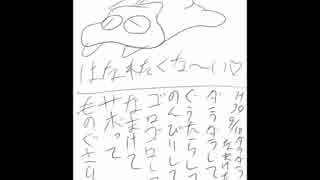 はなれたくな〜い♡
H30 9/10 ダラダラ
ダラダラして
ぐうたらして
のんびりして
ゴロゴロして
なまけて
サボって
ものぐさ